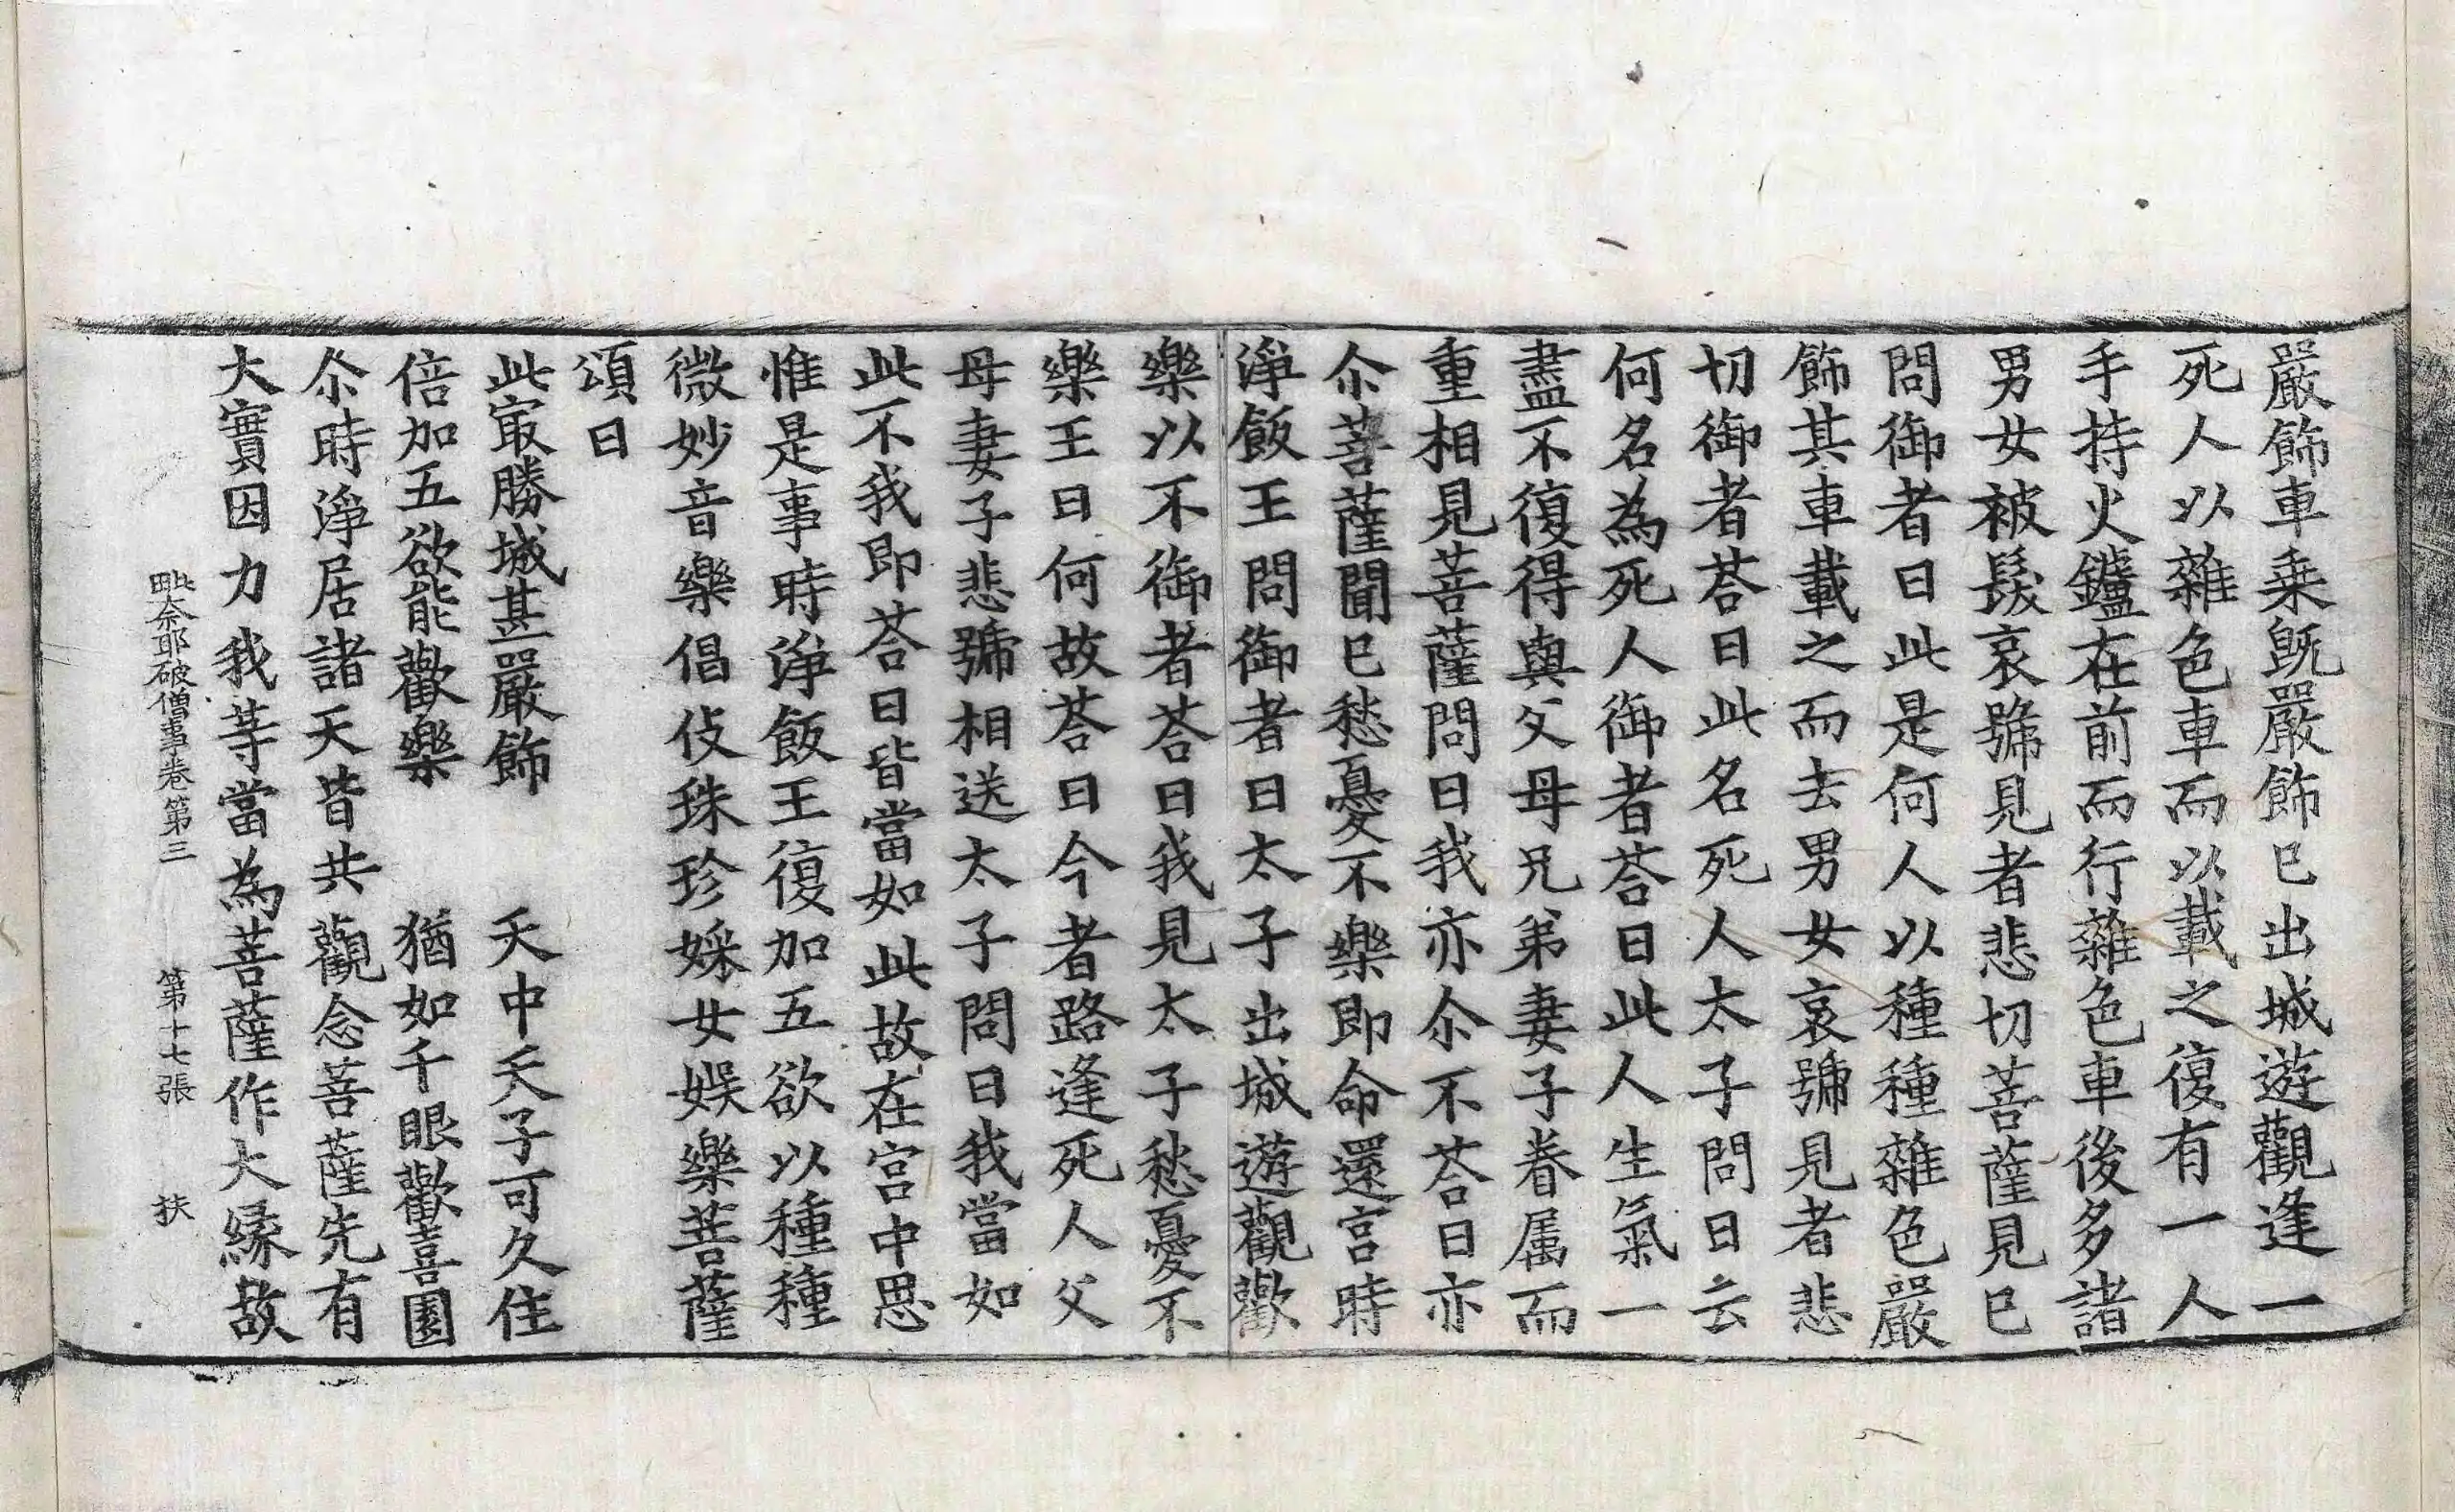 嚴飾車乗既嚴飾已出城遊觀逢一
死人以雜色車而以載之復有一人
手持火鑪在前而行雜色車後多諸
男女被髮哀號見者悲切菩薩見已
問御者曰此是何人以種種雜色嚴
飾其車載之而去男女哀號見者悲
切御者荅曰此名死人太子問曰云
何名為死人御者荅曰此人生氣一
盡不復得與父母兄弟妻子眷属而
重相見菩薩問曰我亦尒不荅曰亦
尒菩薩聞已愁憂不樂即命還宫時
淨飯王問御者曰太子出城遊觀歡
樂以不御者荅曰我見太子愁憂不
樂王曰何故荅曰今者路逢死人父
母妻子悲號相送太子問曰我當如
此不我即荅曰皆當如此故在宫中思
惟是事時淨飯王復加五欲以種種
微妙音樂倡伎珠珍婇女娱樂菩薩
頌曰
此冣勝城甚嚴飾　天中天子可久住
倍加五欲能歡樂　猶如千眼歡喜園
尒時淨居諸天皆共觀念菩薩先有
大實因力我等當為菩薩作大縁故
毗奈耶破僧事卷第三　第十七張　扶